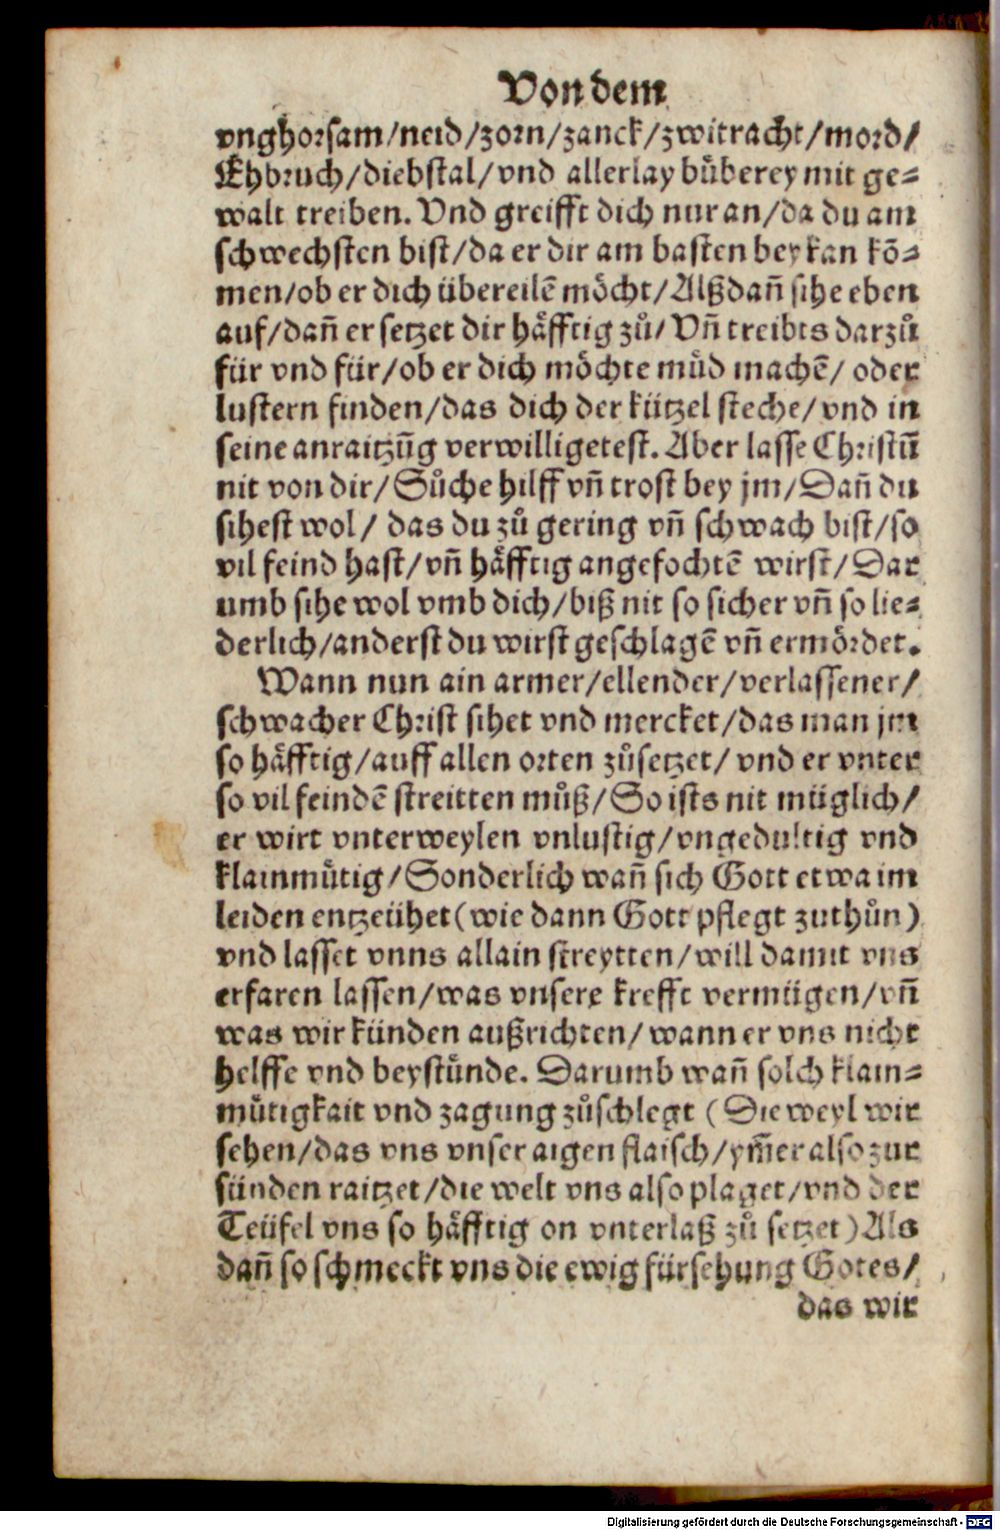 Von dem
vnghorsam/neid/zorn/zanck/zwitracht/mord/
Ehbruch/diebstal/vnd allerlay bůberey mit ge⸗
walt treiben. Vnd greifft dich nur an/da du am
schwechsten bist/da er dir am basten bey kan kõ⸗
men/ob er dich übereilẽ möcht/Alßdañ sihe eben
auf/dañ er setzet dir häfftig zů/Vñ treibts darzů
für vnd für/ob er dich möchte můd machẽ/ oder
lustern finden/das dich der kützel steche/vnd in
seine anraitzũg verwilligetest. Aber lasse Christũ
nit von dir/Sůche hilff vñ trost bey jm/Dañ du
sihest wol/ das du zů gering vñ schwach bist/so
vil feind hast/vñ häfftig angefochtẽ wirst/Dar
umb sihe wol vmb dich/biß nit so sicher vñ so lie⸗
derlich/anderst du wirst geschlagẽ vñ ermördet.
Wann nun ain armer/ellender/verlassener/
schwacher Christ sihet vnd mercket/das man jm
so häfftig/auff allen orten zůsetzet/ vnd er vnter
so vil feindẽ streitten můß/So ists nit müglich/
er wirt vnterweylen vnlustig/vngedultig vnd
klainmůtig/Sonderlich wañ sich Gott etwa im
leiden entzeühet(wie dann Gott pflegt zuthůn)
vnd lasset vnns allain streytten/will damit vns
erfaren lassen/was vnsere krefft vermügen/vñ
was wir künden außrichten/wann er vns nicht
helffe vnd beystünde. Darumb wañ solch klain⸗
můtigkait vnd zagung zůschlegt (Die weyl wir
sehen/das vns vnser aigen flaisch/ym̃er also zur
sünden raitzet/die welt vns also plaget/vnd der
Teüfel vns so häfftig on vnterlaß zů setzet)Als
dañ so schmeckt vns die ewig fürsehung Gotes/
das wir
Digitalisierung gefördert durch die Deutsche Forschungsgemeinschaft - DFG